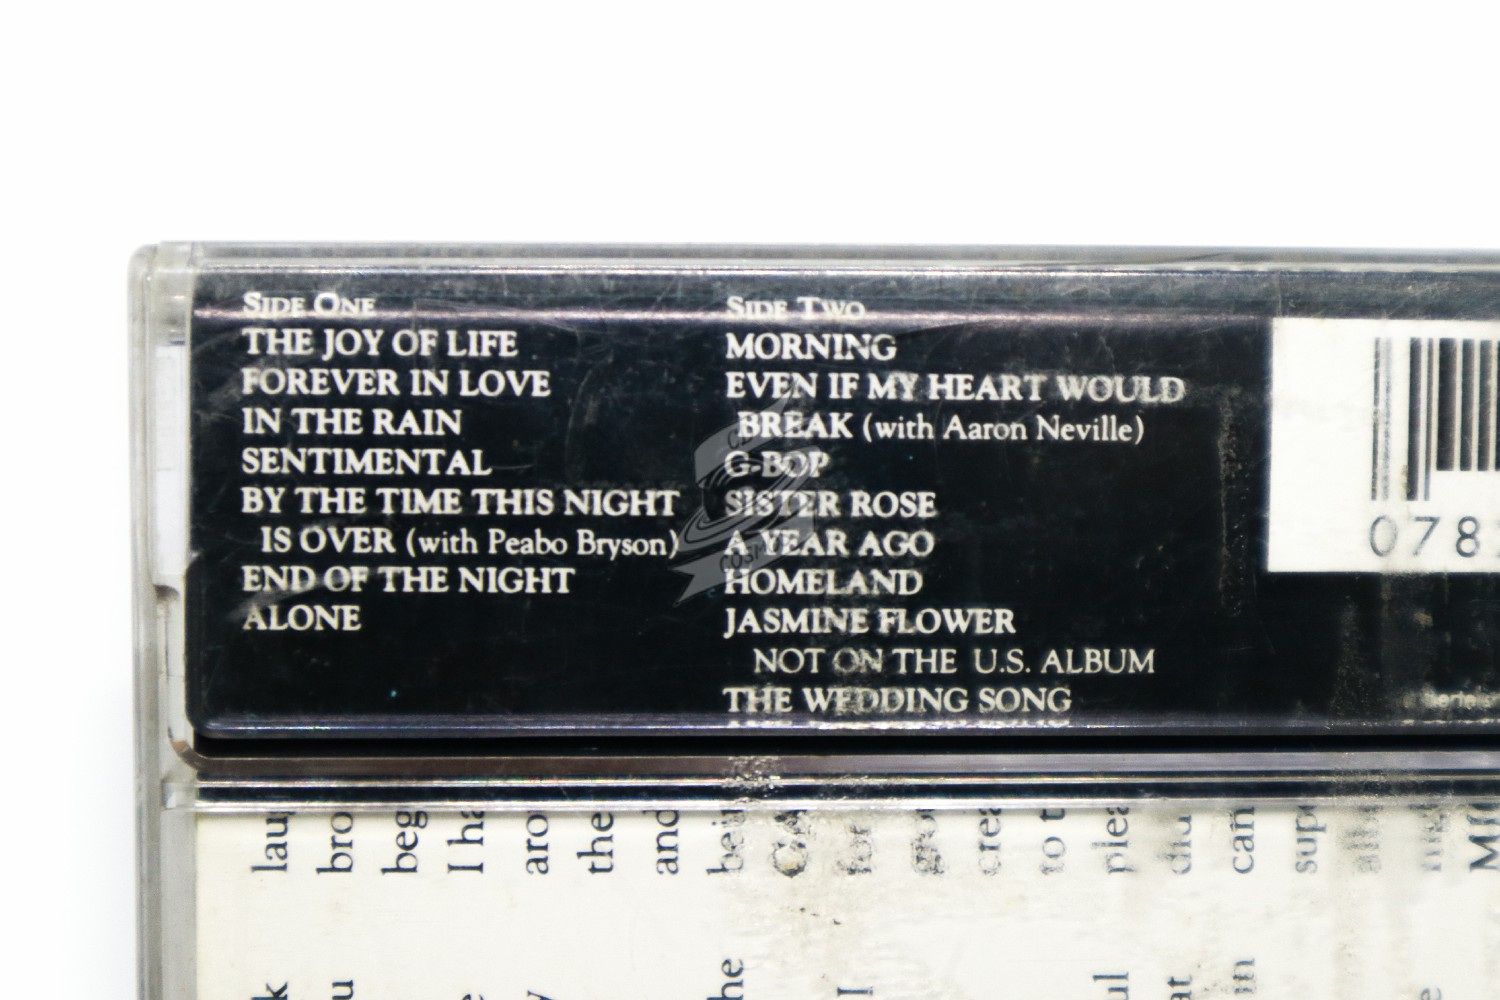 SIDE ONE
THE JOY OF LIFE
FOREVER IN LOVE
IN THE RAIN
SENTIMENTAL
BY THE TIME THIS NIGHT
IS OVER (with Peabo Bryson)
END OF THE NIGHT
ALONE
SIDE TWO
MORNING
EVEN IF MY HEART WOULD
BREAK (with Aaron Neville)
G-BOP
SISTER ROSE
A YEAR AGO
HOMELAND
JASMINE FLOWER
NOT ON THE U.S. ALBUM
THE WEDDING SONG
078
COSMOS
lau
bro
beg
I ha
aro
the
and
bein
for
crea
to t
plea
can
sup